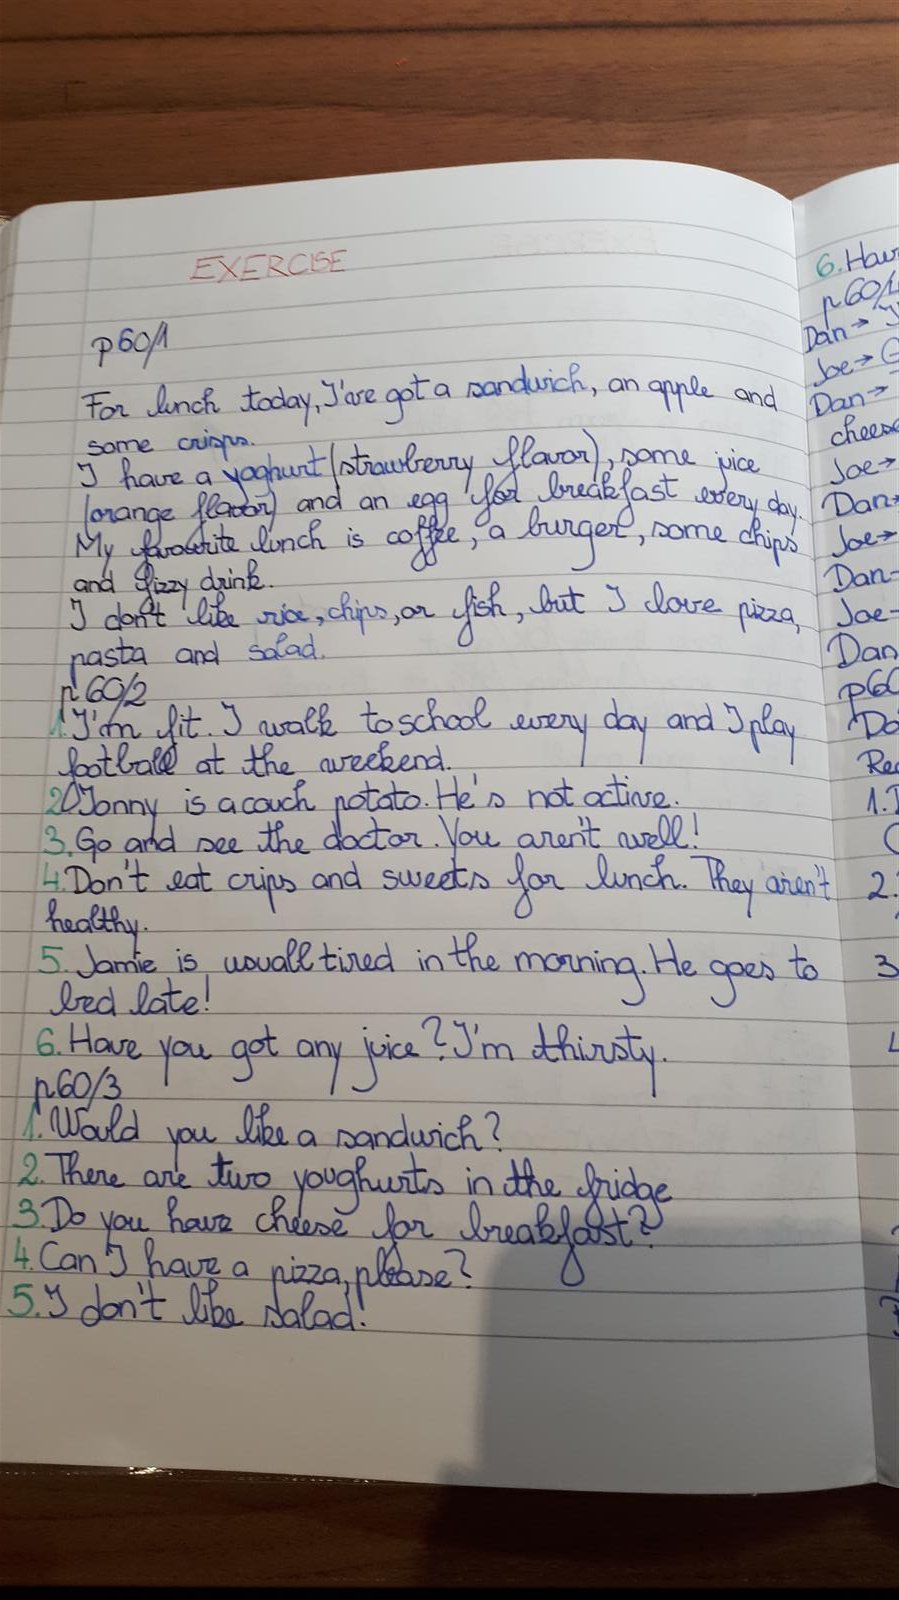 EXERCISE
p60/1
For lunch today, I've got a sandwich, an apple and
some crisps.
I have a yoghurt (strawberry flavor), some juice
(orange flavor) and an egg for breakfast every day.
My favourite lunch is coffee, a burger, some chips
and fizzy drink.
I don't like rice, chips, or fish, but I love pizza,
pasta and salad.
p60/2
1. I'm fit. I walk to school every day and I play
football at the weekend.
2. Jonny is a couch potato. He's not active.
3. Go and see the doctor. You aren't well!
4. Don't eat crips and sweets for lunch. They aren't
healthy.
5. Jamie is usuall tired in the morning. He goes to
bed late!
6. Have you got any juice? I'm thirsty.
p60/3
1. Would you like a sandwich?
2. There are two youghurts in the fridge
3. Do you have cheese for breakfast?
4. Can I have a pizza, please?
5. I don't like salad!
6. Hav
p60/4
Dan→
Joe→
Dan→
cheese
Joe→
Dan→
Joe→
Dan
Joe
Dan
p60
Do
Rea
1. I
2.
3